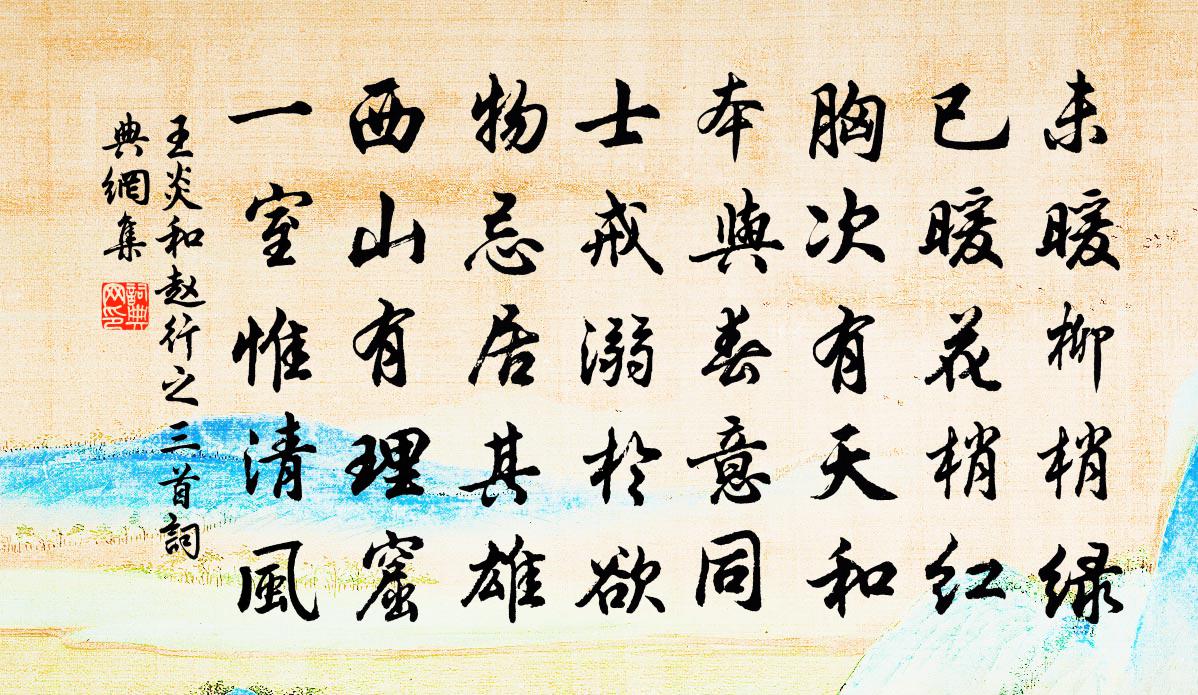 未暖柳梢绿
已暖花梢红
胸次有天和
本與春意同
士戒溺於欲
物忌居其雄
西山有理窟
一室惟清風
王炎和赵行之三首詞
典網集
詞典网印